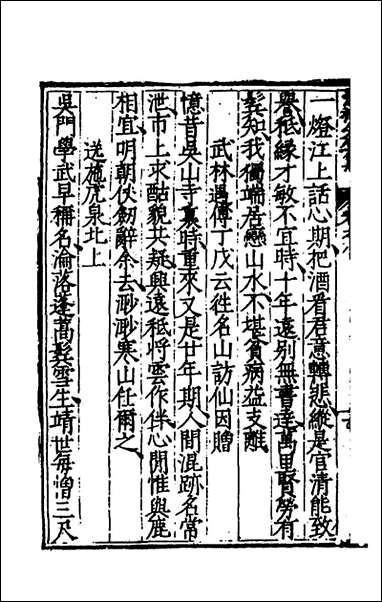 一燈江上話心期把酒看君意轉悲縱是官清能致
譽祗緣才敏不宜時十年遠別無書達萬里賢勞有
髩知我獨端居戀山水不堪貧病益支離
武林遇傅丁戊云徃名山訪仙因贈
憶昔吳山寺裏時重來又是廿年期人間混跡名常
泄市上求酤貌共疑興遠秪將雲作伴心閒惟與鹿
相宜明朝伏劒辭余去渺渺寒山任爾之
送施虎泉北上
吳門學武早稱名淪落蓬蒿髩雪生靖世每憎三尺